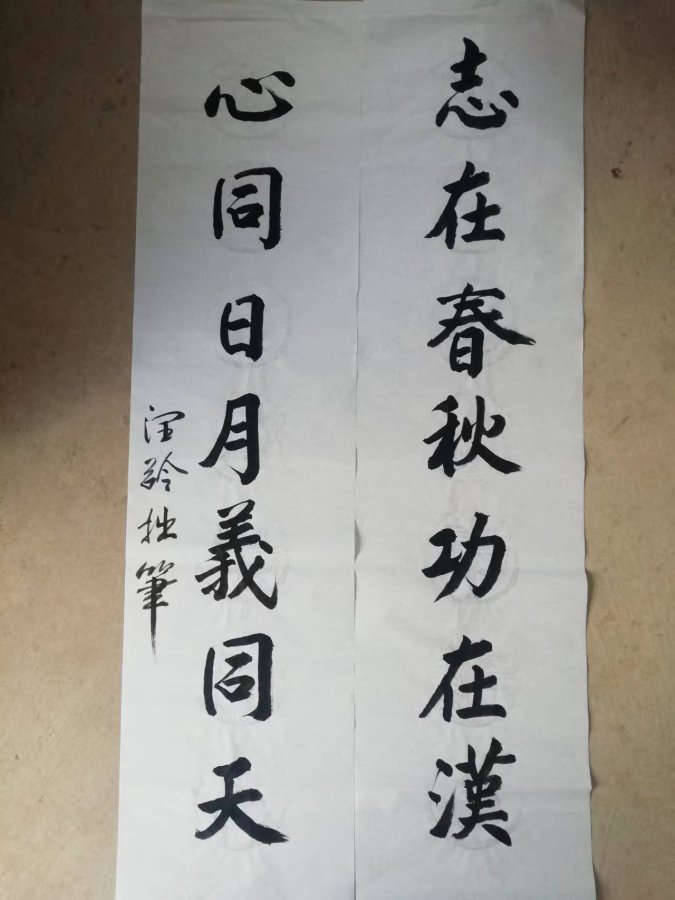 志在春秋功在漢
心同日月義同天
拙筆